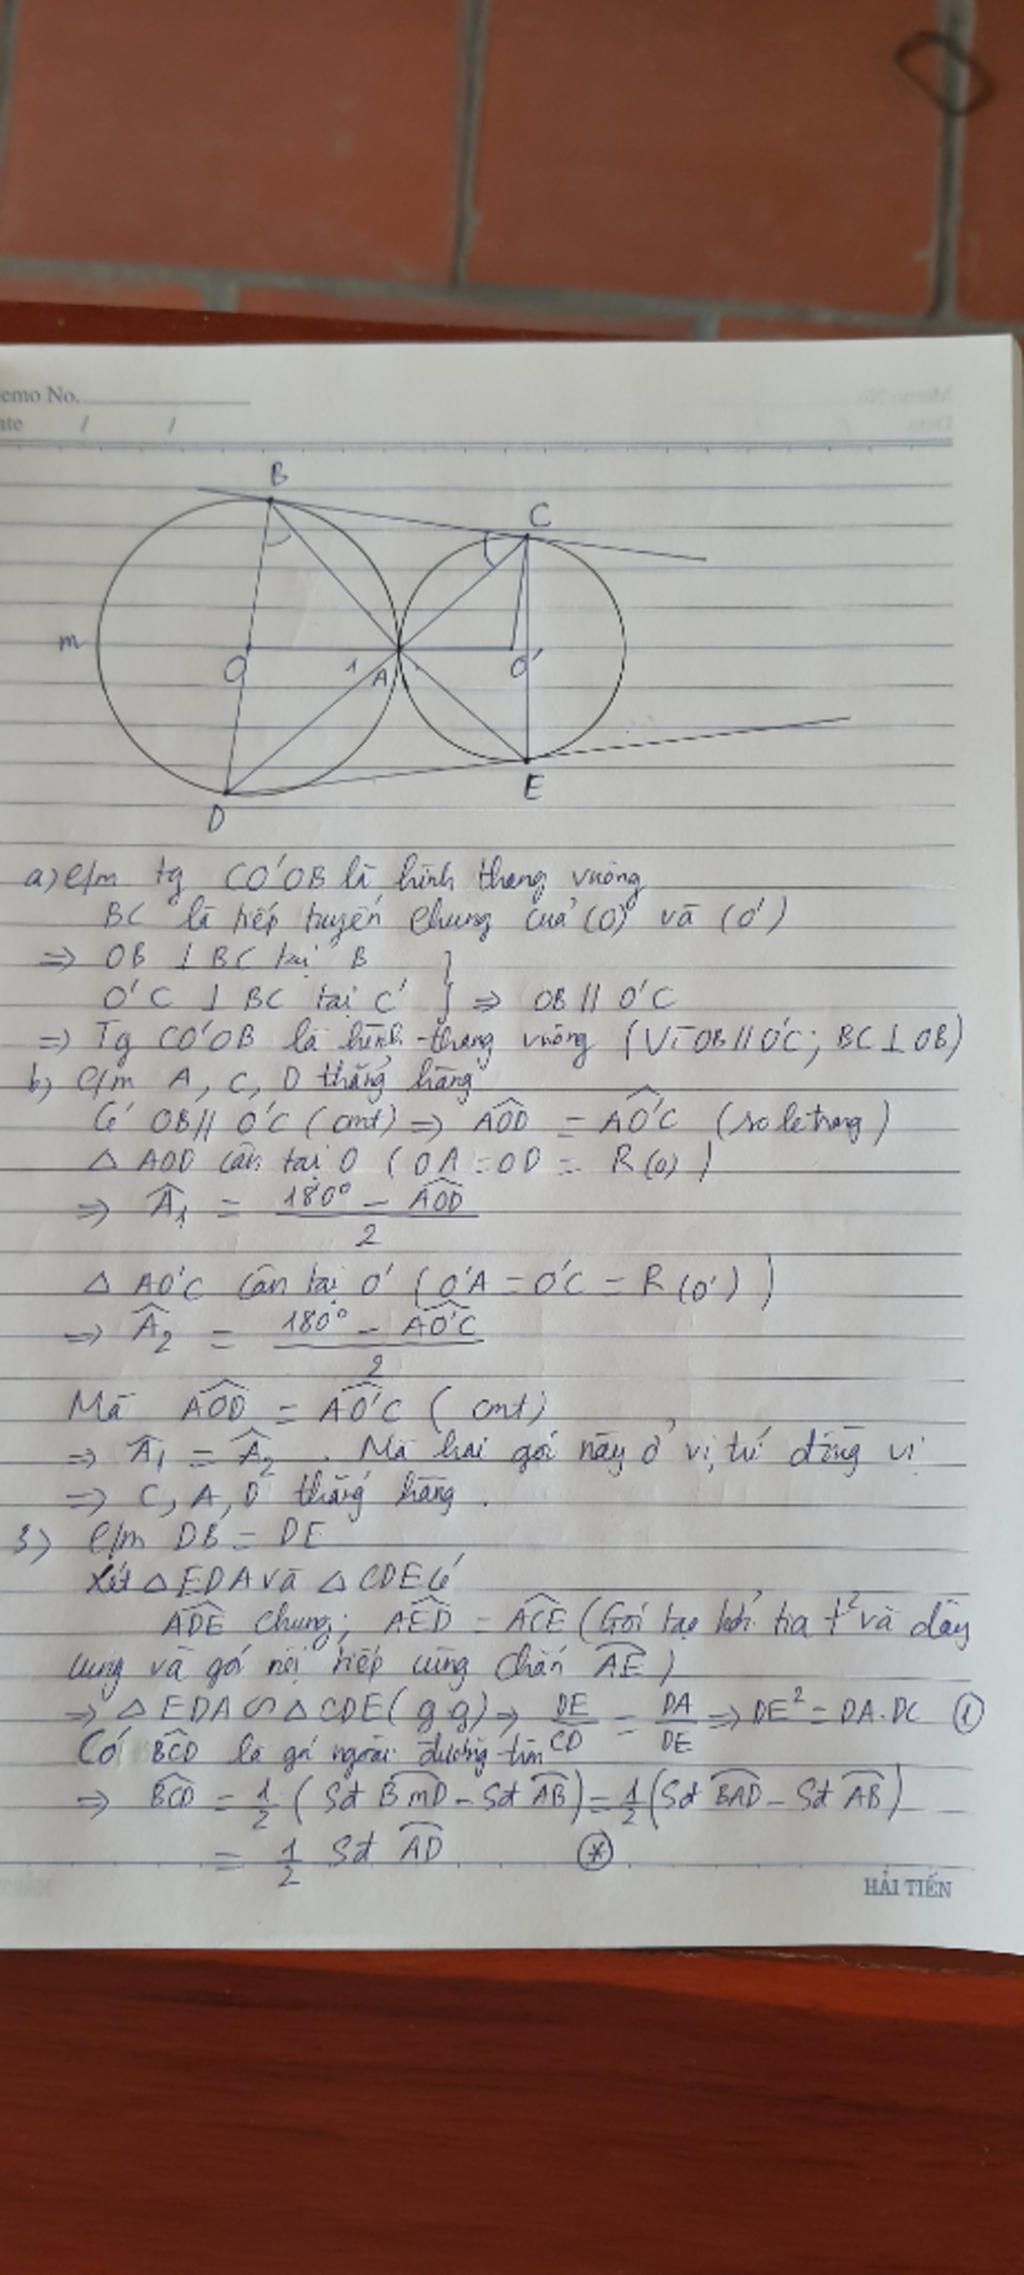 emo No.
ate / /
B
C
m
O
1
A
O'
D
E
a) c/m tg CO'OB là hình thang vuông
BC là tiếp tuyến chung của (O) và (O')
=> OB ⊥ BC tại B
O'C ⊥ BC tại C } => OB // O'C
=> Tg CO'OB là hình thang vuông (Vì OB // O'C; BC ⊥ OB)
b) c/m A, C, D thẳng hàng
Có OB // O'C (cmt) => \widehat{AOD} = \widehat{AO'C} (so le trong)
△ AOD cân tại O (OA = OD = R(O))
=> \widehat{A}_1 = \frac{180° - \widehat{AOD}}{2}
△ AO'C cân tại O' (O'A = O'C = R(O'))
=> \widehat{A}_2 = \frac{180° - \widehat{AO'C}}{2}
Mà \widehat{AOD} = \widehat{AO'C} (cmt)
=> \widehat{A}_1 = \widehat{A}_2 . Mà hai góc này ở vị trí đồng vị
=> C, A, D thẳng hàng.
3) c/m DB = DE
Xét △ EDA và △ CDE có
\widehat{ADE} chung; \widehat{AED} = \widehat{ACE} (Góc tạo bởi tia t² và dây
cung và góc nội tiếp cùng chắn \widehat{AE})
=> △ EDA ∽ △ CDE (g g) => \frac{DE}{CD} = \frac{DA}{DE} => DE² = DA.DC ①
Có \widehat{BCD} là góc ngoài đường tròn
=> \widehat{BCD} = \frac{1}{2} (Sđ \widehat{BmD} - Sđ \widehat{AB}) = \frac{1}{2} (Sđ \widehat{BAD} - Sđ \widehat{AB})
= \frac{1}{2} Sđ \widehat{AD} (*)
HẢI TIẾN